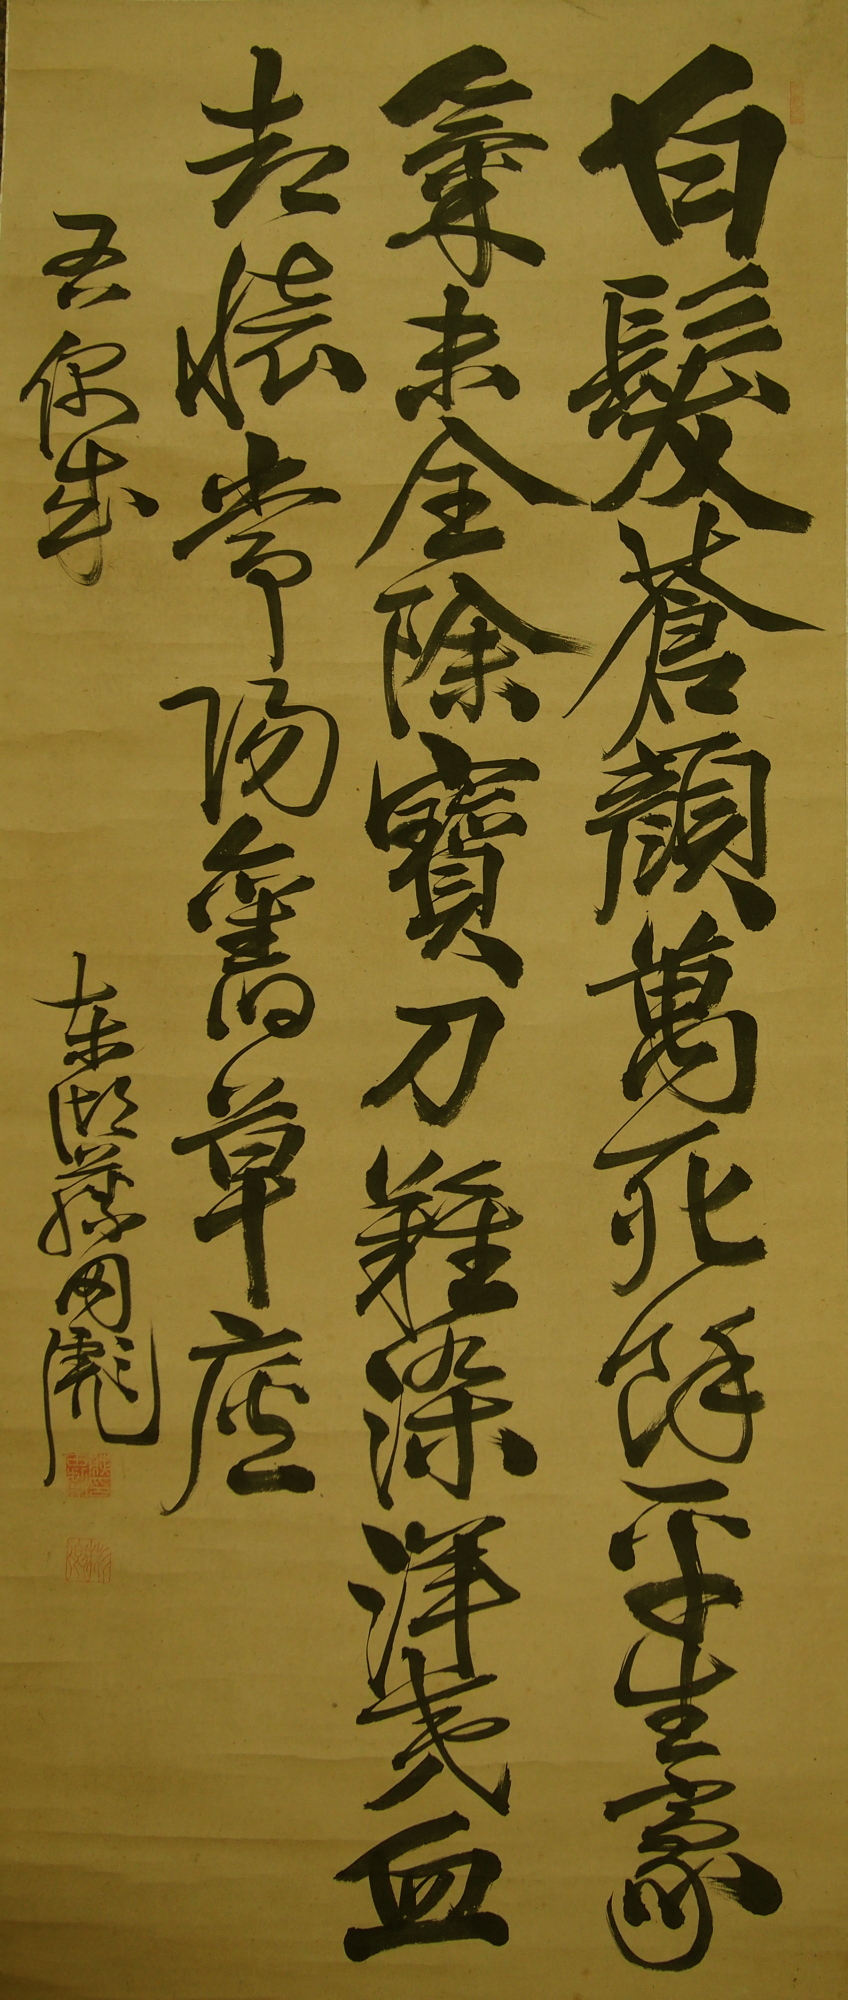 白髮蒼顔萬死餘平生豪
氣未全除寶刀難染洋夷血
却懐常陽舊草廬
吾偶成
東湖藤田彪